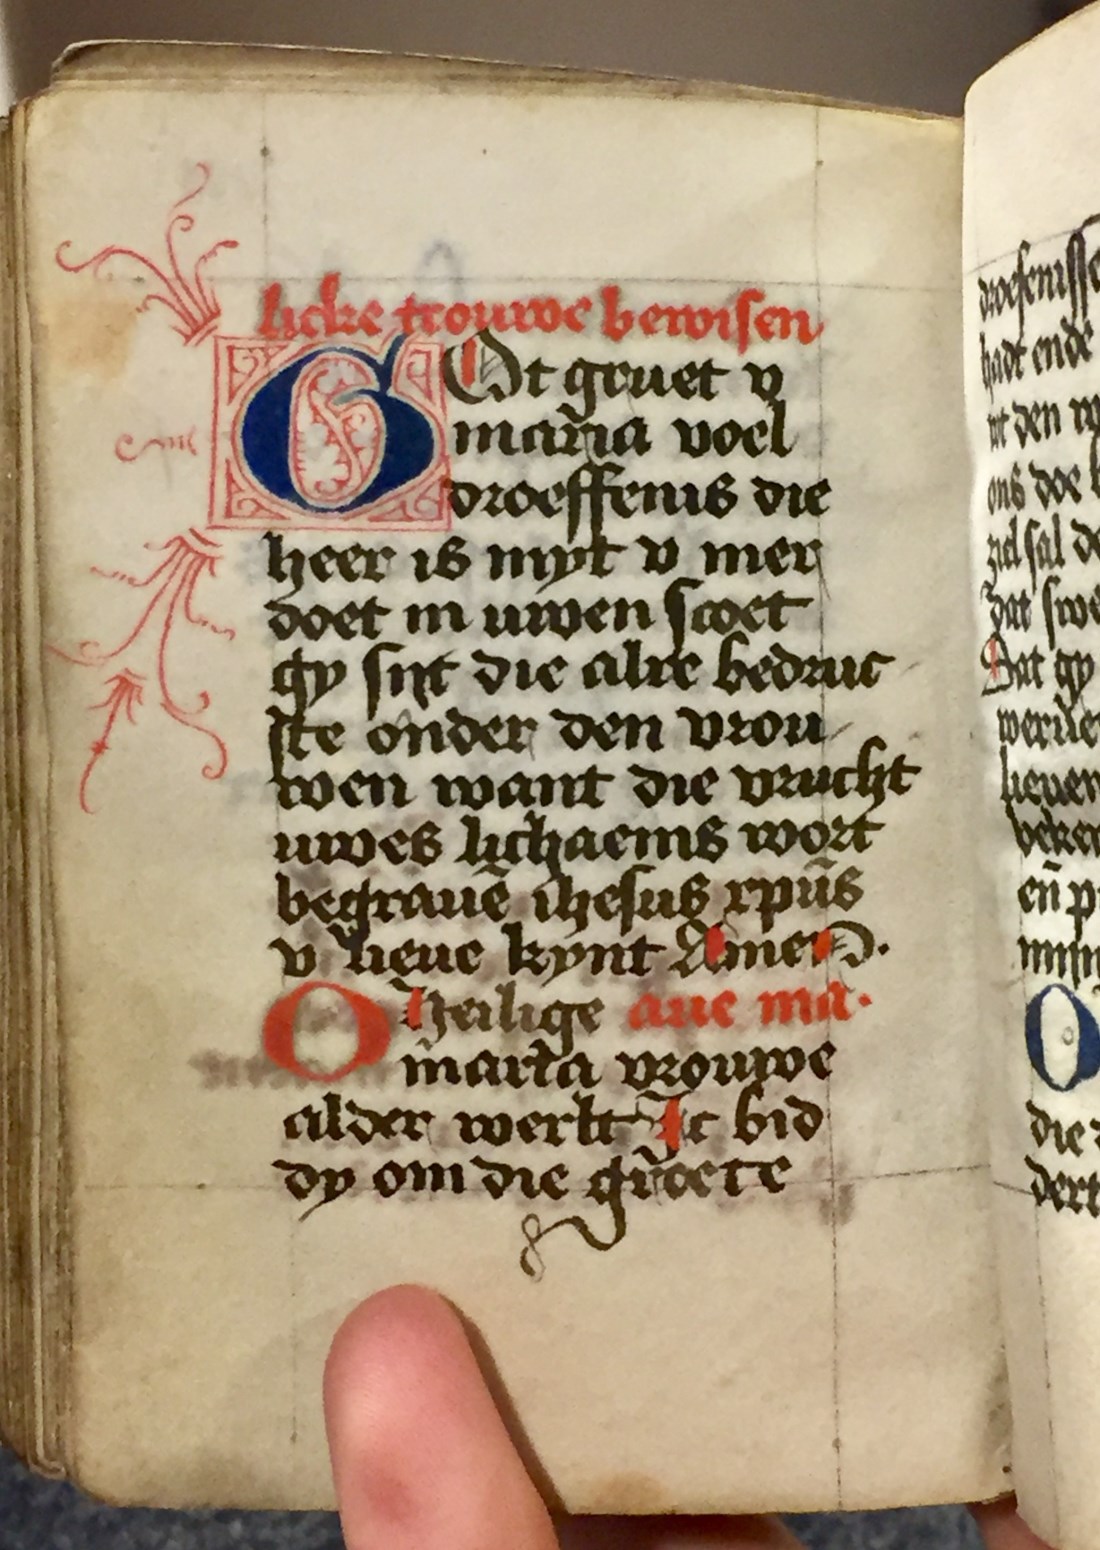 licke trouwe bewisen
GOt gruet v
maria voel
droeffenis die
heer is myt v mer
doet in uwen scoet
gy sijt die alre bedruc
ste onder den vrou
wen want die vrucht
uwes lichaems wort
begrauē ihesus xpūs
v lieue kynt Amen.
O heilige aue ma.
maria vrouwe
alder werlt Ic bid
dy om die groete
droefenisse
hadt ende
ons doe
ziel sal de
Dat gy
werde
lieuen
en p
O
die
dert